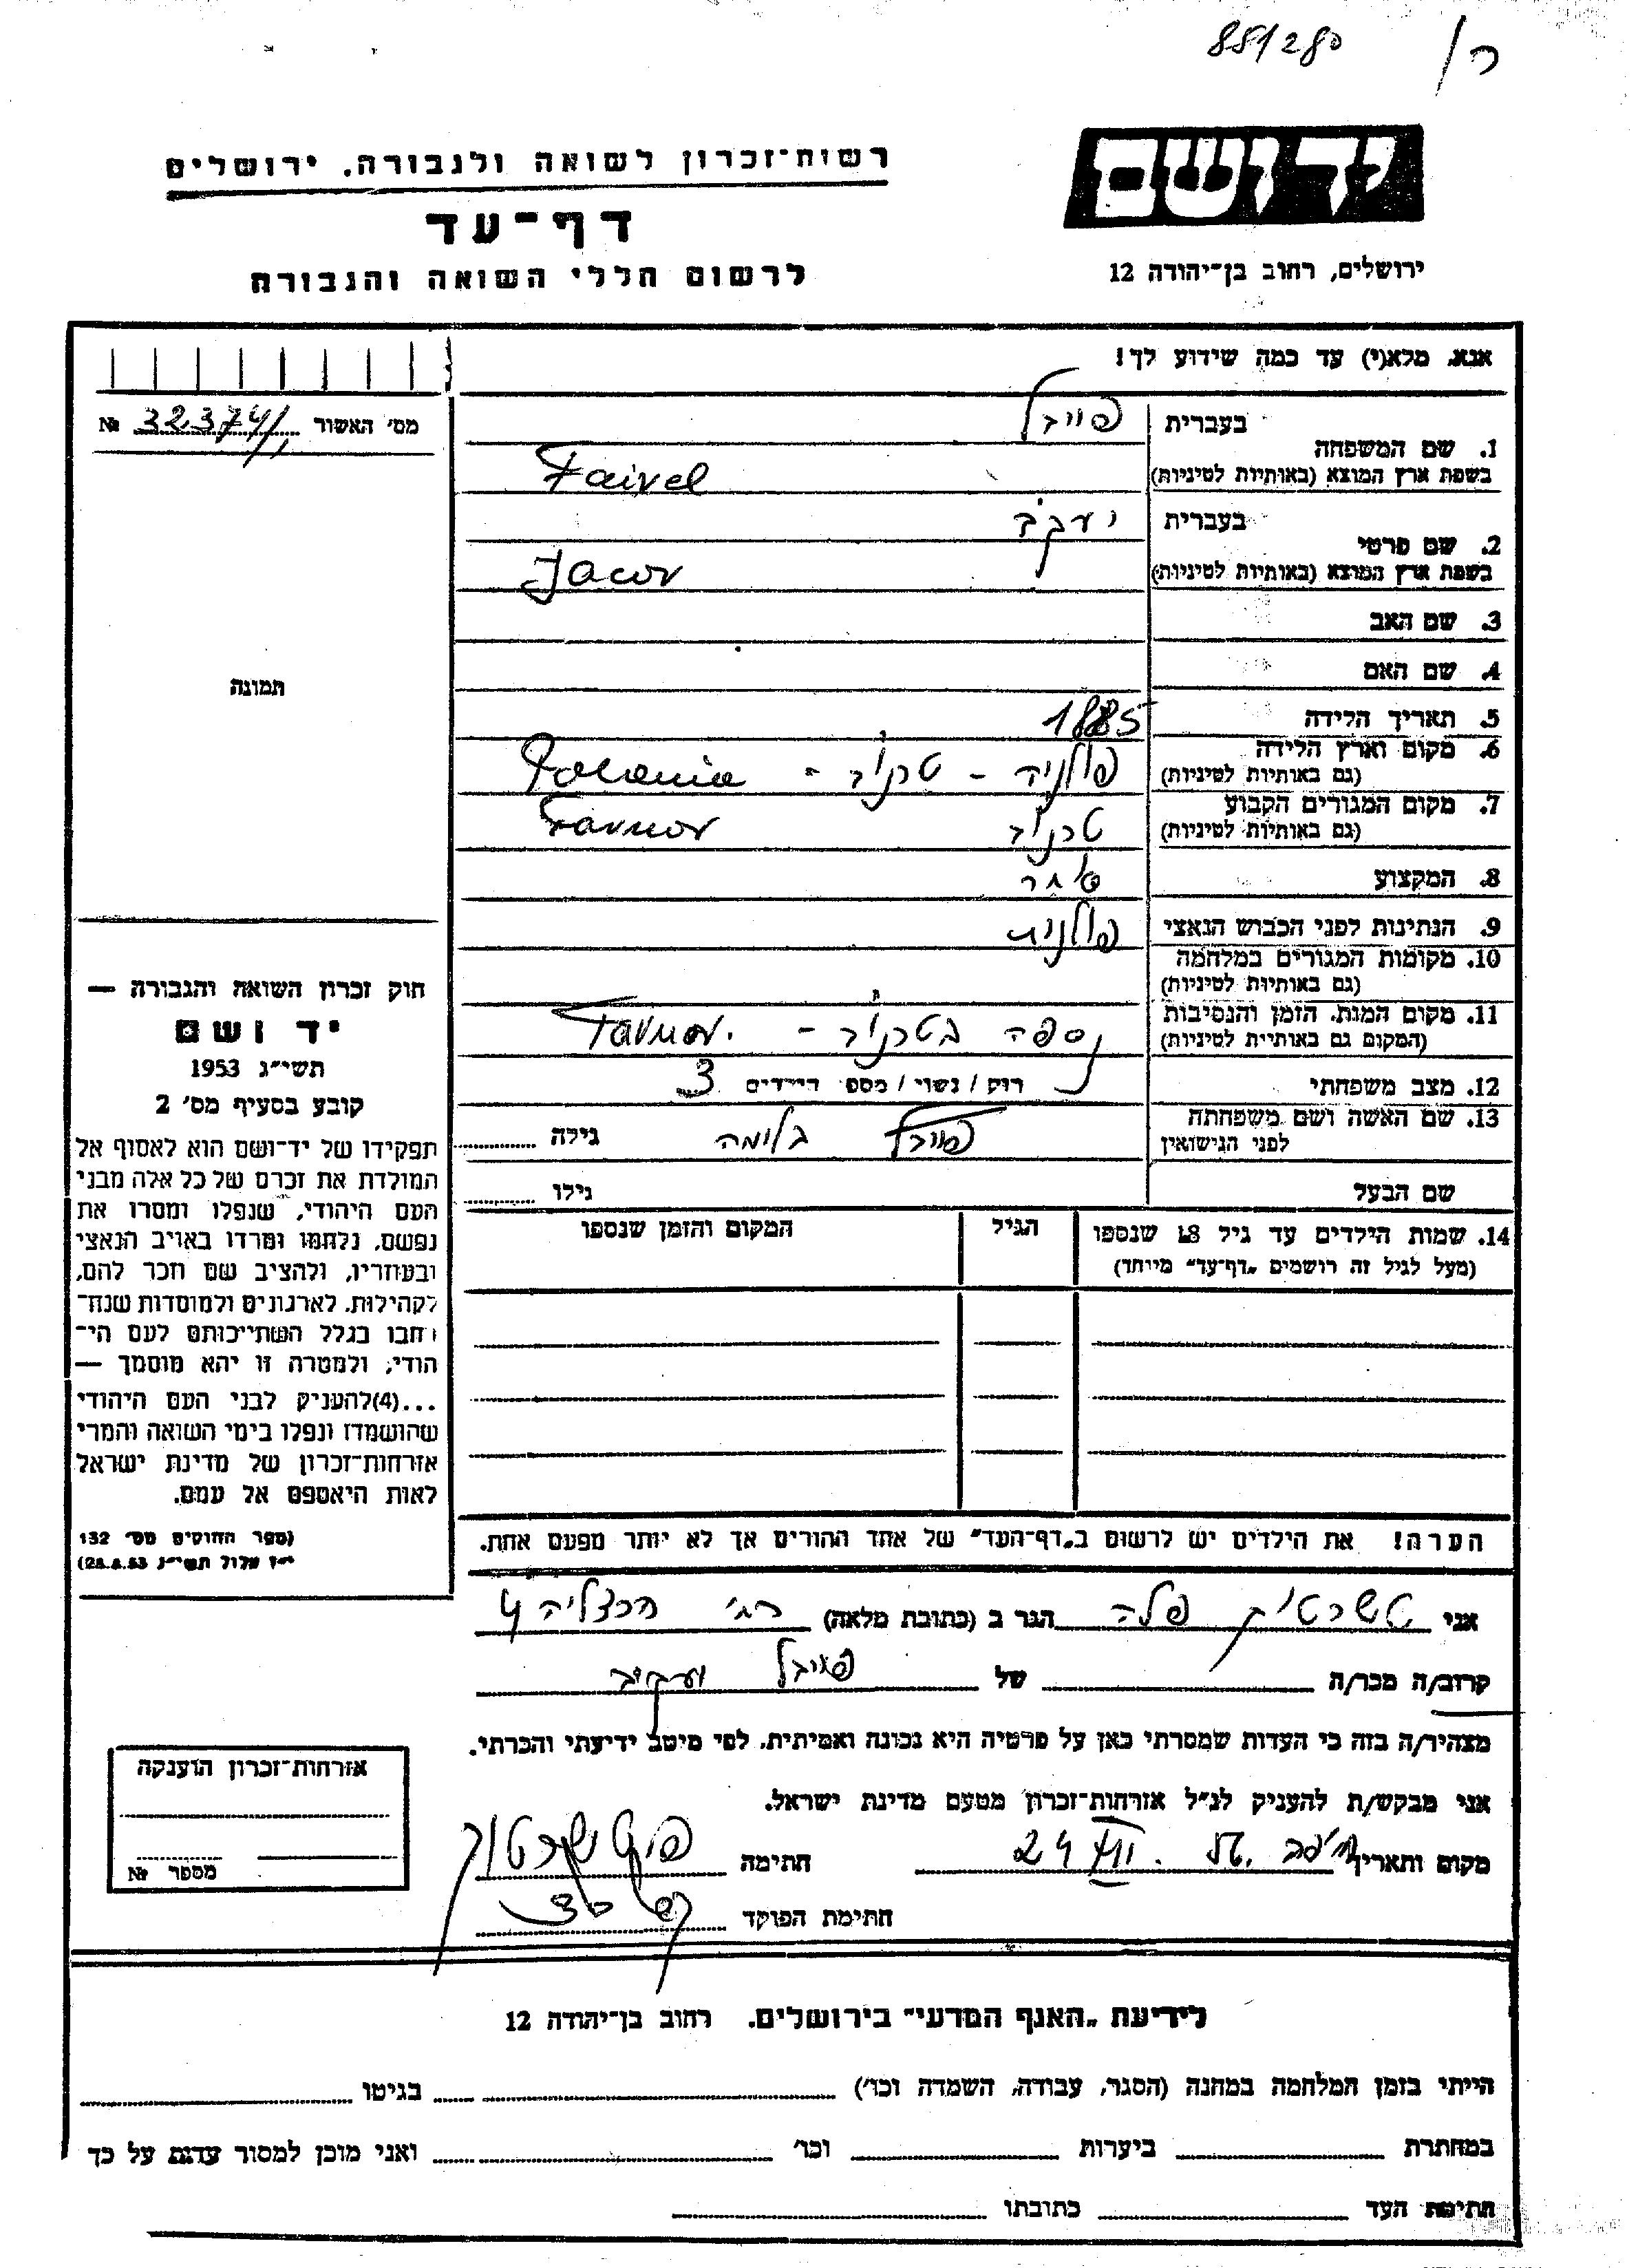 85/280
ה/
רשות־זכרון לשואה ולגבורה, ירושלים
דף־עד
לרשום חללי השואה והגבורה
יד ושם
ירושלים, רחוב בן־יהודה 12
אנא, מלא(י) עד כמה שידוע לך!
מס׳ האשור 32374/ №
1. שם המשפחה
בעברית פייבל
בשפת ארץ המוצא (באותיות לטיניות) Faivel
2. שם פרטי
בעברית יעקב
בשפת ארץ המוצא (באותיות לטיניות) Jacov
3. שם האב
4. שם האם
תמונה
5. תאריך הלידה 1885
6. מקום וארץ הלידה
(גם באותיות לטיניות) פולניה - טרנוב - Polania
7. מקום המגורים הקבוע
(גם באותיות לטיניות) טרנוב Tarnov
8. המקצוע סוחר
9. הנתינות לפני הכבוש הנאצי פולנית
10. מקומות המגורים במלחמה
(גם באותיות לטיניות)
11. מקום המות, הזמן והנסיבות
(המקום גם באותיות לטיניות) נספה בטרנוב - Tarnov.
12. מצב משפחתי רוק / נשוי / מספר הילדים 3
13. שם האשה ושם משפחתה
לפני הנישואין פייבל בלומה גילה
שם הבעל גילו
14. שמות הילדים עד גיל 18 שנספו
(מעל לגיל זה רושמים „דף־עד״ מיוחד)
הגיל
המקום והזמן שנספו
הערה! את הילדים יש לרשום ב„דף־העד״ של אחד ההורים אך לא יותר מפעם אחת.
חוק זכרון השואה והגבורה —
יד ושם
תשי״ג 1953
קובע בסעיף מס׳ 2
תפקידו של יד־ושם הוא לאסוף אל
המולדת את זכרם של כל אלה מבני
העם היהודי, שנפלו ומסרו את
נפשם, נלחמו ומרדו באויב הנאצי
ובעוזריו, ולהציב שם וזכר להם,
לקהילות, לארגונים ולמוסדות שנח־
רבו בגלל השתייכותם לעם הי־
הודי; ולמטרה זו יהא מוסמך —
...(4)להעניק לבני העם היהודי
שהושמדו ונפלו בימי השואה והמרי
אזרחות־זכרון של מדינת ישראל
לאות היאספם אל עמם.
(ספר החוקים מס׳ 132
י״ז אלול תשי״ג 28.8.53)
אני הגר ב (כתובת מלאה) רח׳ הרצליה 4
קרוב/ה מכר/ה של פייבל יעקב
מצהיר/ה בזה כי העדות שמסרתי כאן על פרטיה היא נכונה ואמיתית, לפי מיטב ידיעתי והכרתי.
אני מבקש/ת להעניק לנ״ל אזרחות־זכרון מטעם מדינת ישראל.
מקום ותאריך חיפה 24 חתימה
חתימת הפוקד
אזרחות־זכרון הוענקה
מספר №
לידיעת „האגף המדעי״ בירושלים, רחוב בן־יהודה 12
הייתי בזמן המלחמה במחנה (הסגר, עבודה, השמדה וכו׳) בגיטו
במחתרת ביערות וכו׳ ואני מוכן למסור עדות על כך
חתימת העד כתובתו